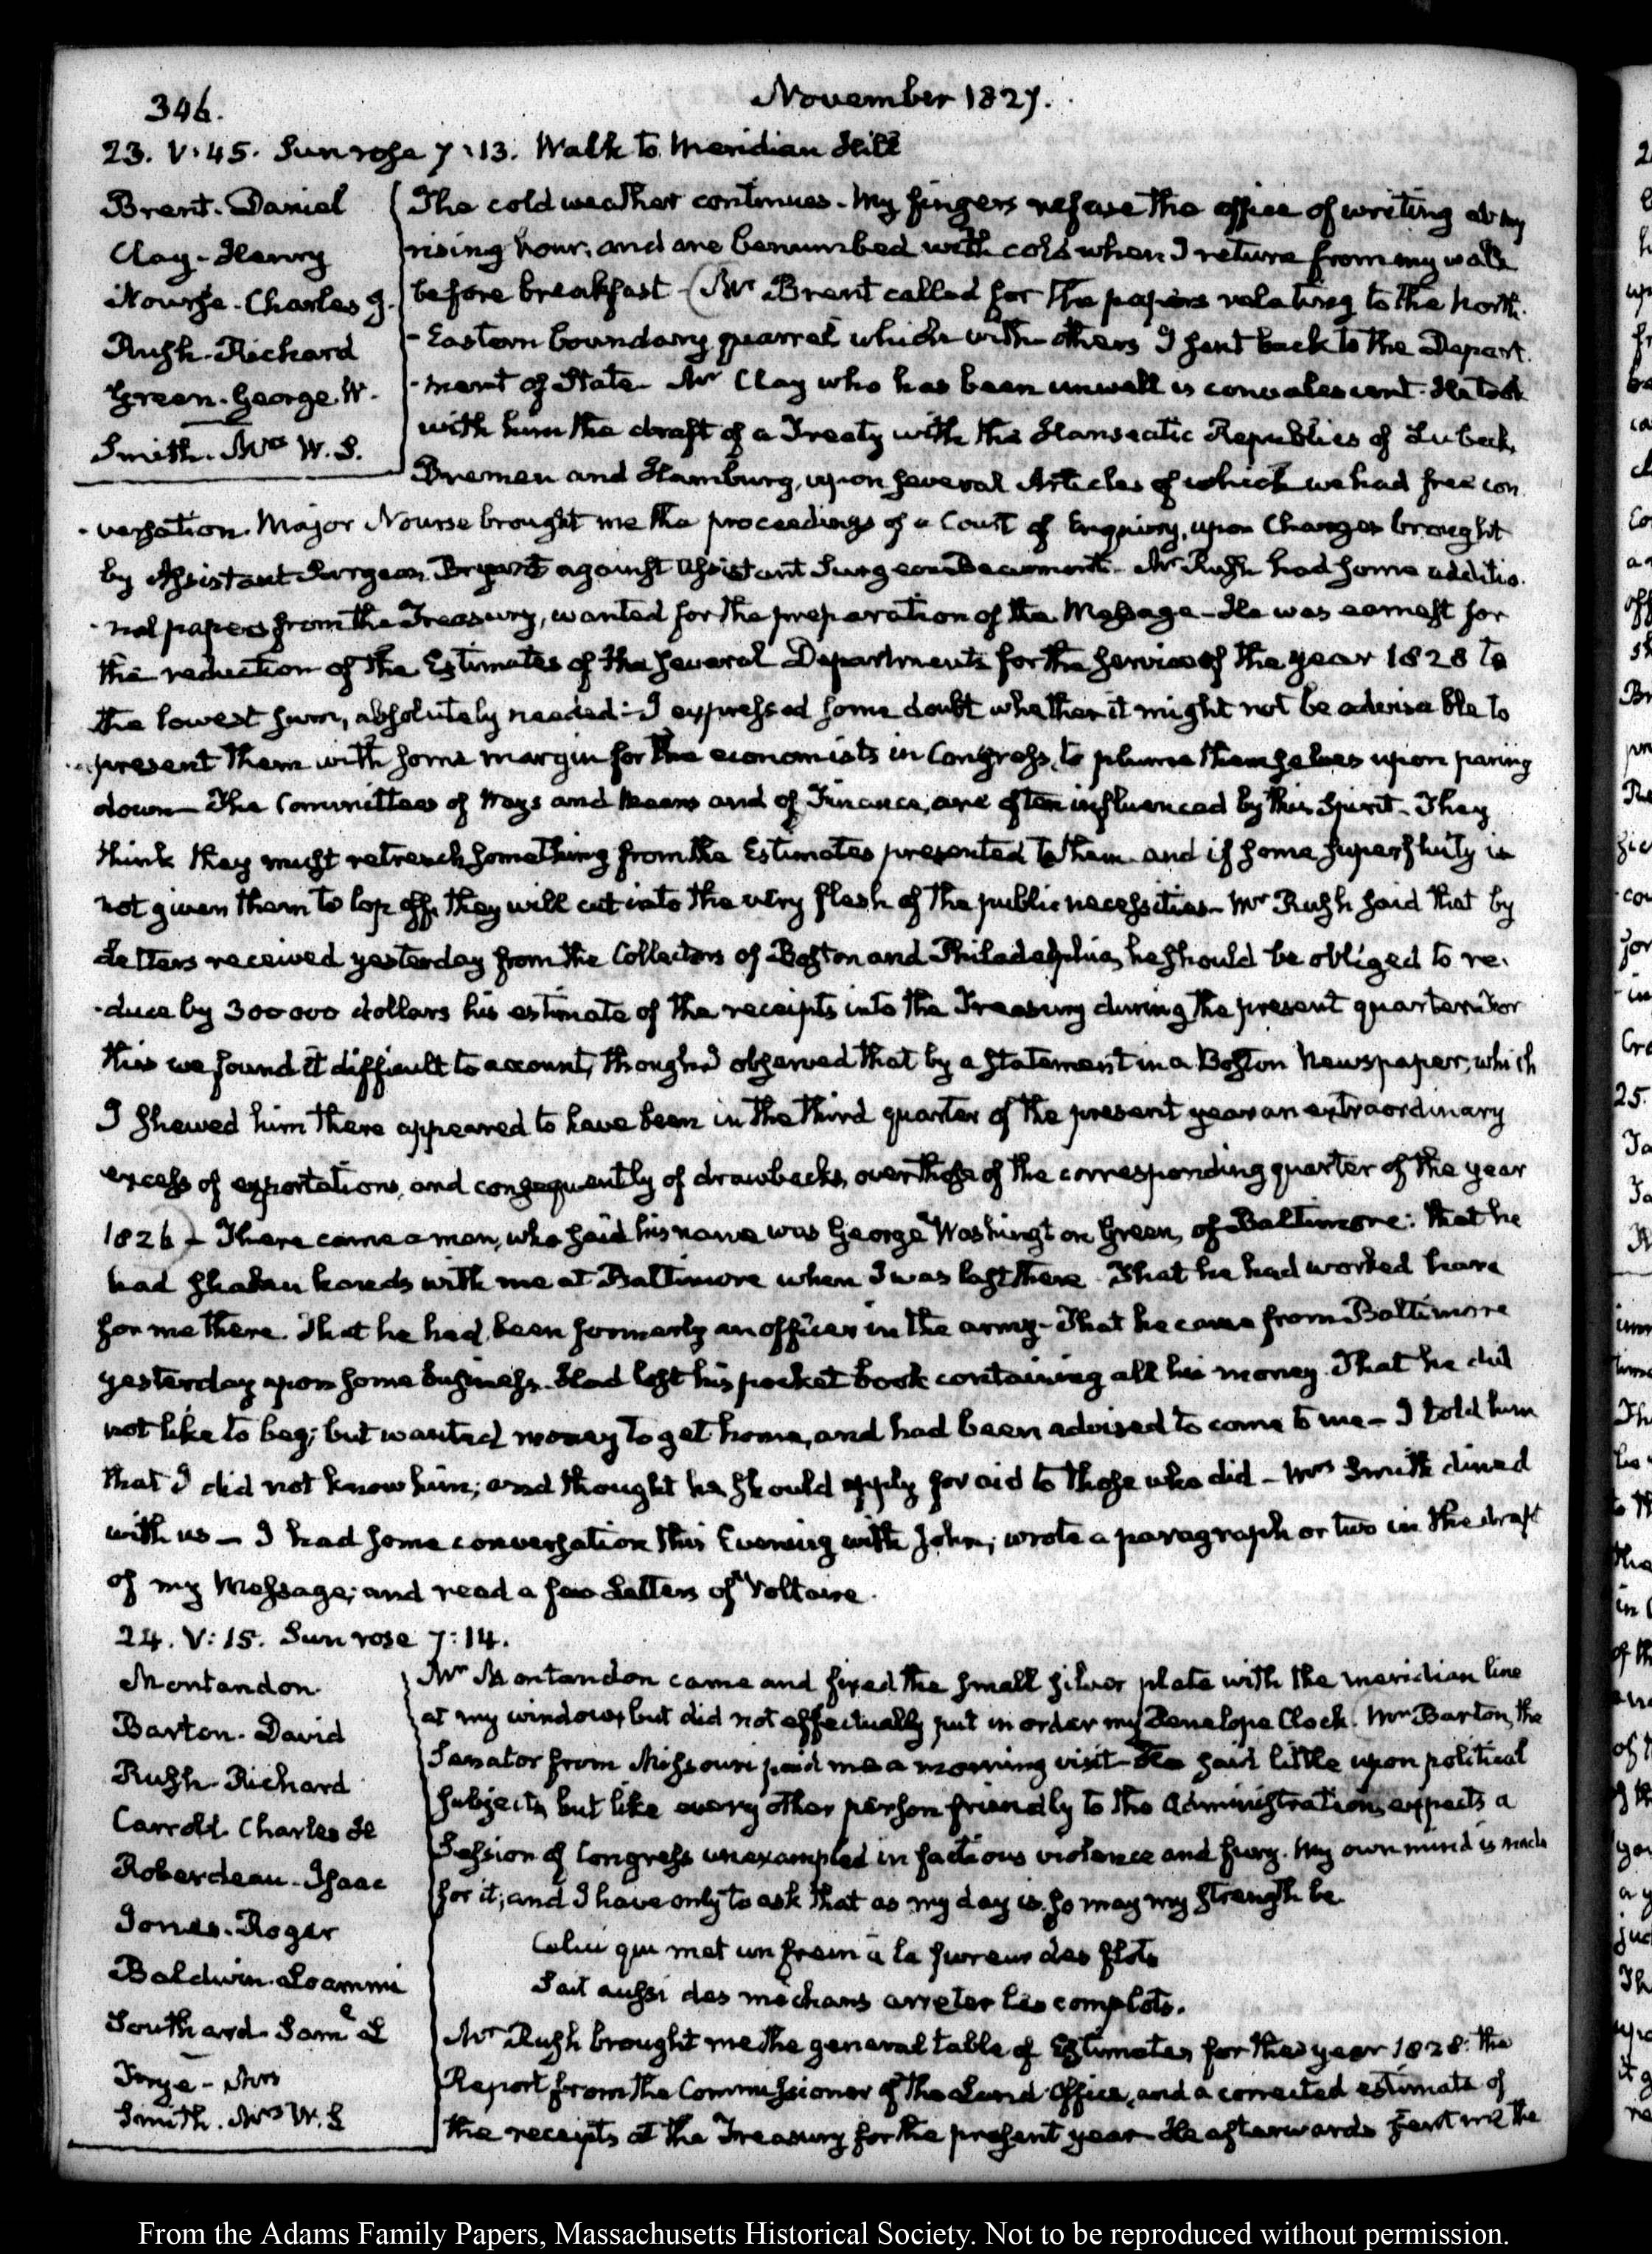 346.
November 1827.
23. V:45. Sun rose 7:13. Walk to Meridian Hill
Brent. Daniel
Clay-Henry
Nourse-Charles J.
Rush-Richard
Green-George W.
Smith. Mrs W.S.
The cold weather continues. My fingers refuse the office of writing at my
rising hour, and are benumbed with cold when I return from my walk
before breakfast-(Mr Brent called for the papers relating to the North-
-Eastern boundary quarrel which with others I sent back to the Depart-
-ment of State- Mr Clay who has been unwell is convalescent. He took
with him the draft of a Treaty with the Hanseatic Republics of Lubeck,
Bremen and Hamburg, upon several Articles of which we had free con-
-versation. Major Nourse brought me the proceedings of a Court of Enquiry, upon Charges brought
by Assistant Surgeon against Assistant Surgeon Mr Rush had some additio-
-nal papers from the Treasury, wanted for the preparation of the Message-He was earnest for
the reduction of the Estimates of the several Departments for the service of the year 1828 to
the lowest sum, absolutely needed:-I expressed some doubt whether it might not be adviseable to
present them with some margin for the economists in Congress, to plume themselves upon paring
down-The Committees of Ways and Means and of Finance, are often influenced by this Spirit-They
think they must retrench something from the Estimates presented to them and if some superfluity is
not given them to lop off, they will cut into the very flesh of the public necessities-Mr Rush said that by
Letters received yesterday from the Collectors of Boston and Philadelphia, he should be obliged to re-
-duce by 300000 dollars his estimate of the receipts into the Treasury during the present quarter. For
this we found it difficult to account, though I observed that by a statement in a Boston Newspaper, which
I shewed him there appeared to have been in the third quarter of the present year an extraordinary
excess of exportations, and consequently of drawbacks, over those of the corresponding quarter of the year
1826)-There came a man, who said his name was George Washington Green, of Baltimore: that he
had shaken hands with me at Baltimore when I was last there. That he had worked here
for me there. That he had been formerly an officer in the army-That he came from Baltimore
yesterday upon some business. Had lost his pocket book containing all his money. That he did
not like to beg; but wanted money to get home, and had been advised to come to me-I told him
that I did not know him; and thought he should apply for aid to those who did-Mrs Smith dined
with us-I had some conversation this Evening with John; wrote a paragraph or two in the draft
of my Message; and read a few Letters of Voltaire.
24. V:15. Sun rose 7:14.
Montandon
Barton. David
Rush-Richard
Carroll. Charles de
Roberdeau-Isaac
Jones-Roger
Baldwin-Loammi
Southard-Saml L
Frye-Mrs
Smith. Mrs W.S
Mr Montandon came and fixed the small silver plate with the meridian line
at my window, but did not effectually put in order my Penelope Clock. Mr Barton, the
Senator from Missouri paid me a morning visit-He said little upon political
subjects, but like every other person friendly to the Administration, expects a
Session of Congress unexampled in factious violence and fury. My own mind is made
for it; and I have only to ask that as my day is so may my strength be.
Celui qui met un frein à la fureur des flots
Sait aussi des méchans arreter les complots.
Mr Rush brought me the general table of Estimates for the year 1828: the
Report from the Commissioner of the Land Office, and a corrected estimate of
the receipts at the Treasury for the present year-He afterwards sent me the
From the Adams Family Papers, Massachusetts Historical Society. Not to be reproduced without permission.